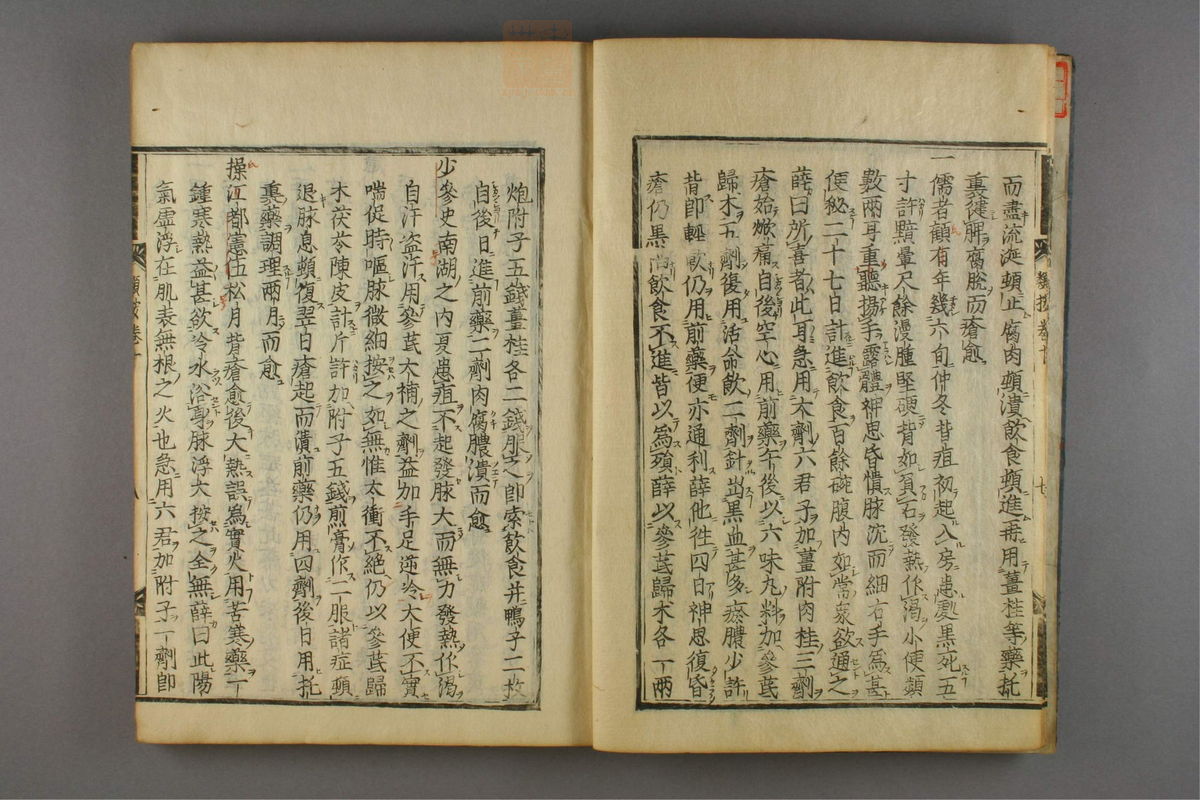 而盡流涎頓止腐肉頓潰飲食頓進再用薑桂等藥托
裏健脾腐脫而瘡愈
一儒者顧有年幾六旬仲冬背疽初起入房患處黑死五
寸許黯暈尺餘漫腫堅硬背如負石發熱作渴小便頻
數兩耳重聽揚手露體神思昏憒脉沉而細右手爲甚
便秘二十七日計進飲食百餘碗腹内如常衆欲通之
薛曰所喜者此耳急用大劑六君子加薑附肉桂三劑
瘡始焮痛自後空心用前藥午後以六味丸料加參芪
歸朮五劑復用活命飲二劑針出黑血甚多瘀膿少許
背即輕軟仍用前藥便亦通利薛他徃四日神思復昏
瘡仍黑尚飲食不進皆以爲殞薛以參芪歸朮各一兩
炮附子五錢薑桂各二錢服之卽索飲食并鴨子二枚
自後日進前藥二劑肉腐膿潰而愈
少參史南湖之内夏患疽不起發脉大而無力發熱作渴
自汗盜汗用參芪大補之劑益加手足逆冷大便不實
喘促時嘔脉微細按之如無惟太衝不絕仍以參芪歸
朮茯苓陳皮計斤許加附子五錢煎膏作二服諸症頓
退脉息頓復翌日瘡起而潰前藥仍用四劑後日用托
裏藥調理兩月而愈
操江都憲伍松月背瘡愈後大熱誤爲實火用苦寒藥一
鍾寒熱益甚欲冷水浴身脉浮大按之全無薛曰此陽
氣虛浮在肌表無根之火也急用六君加附子一劑卽